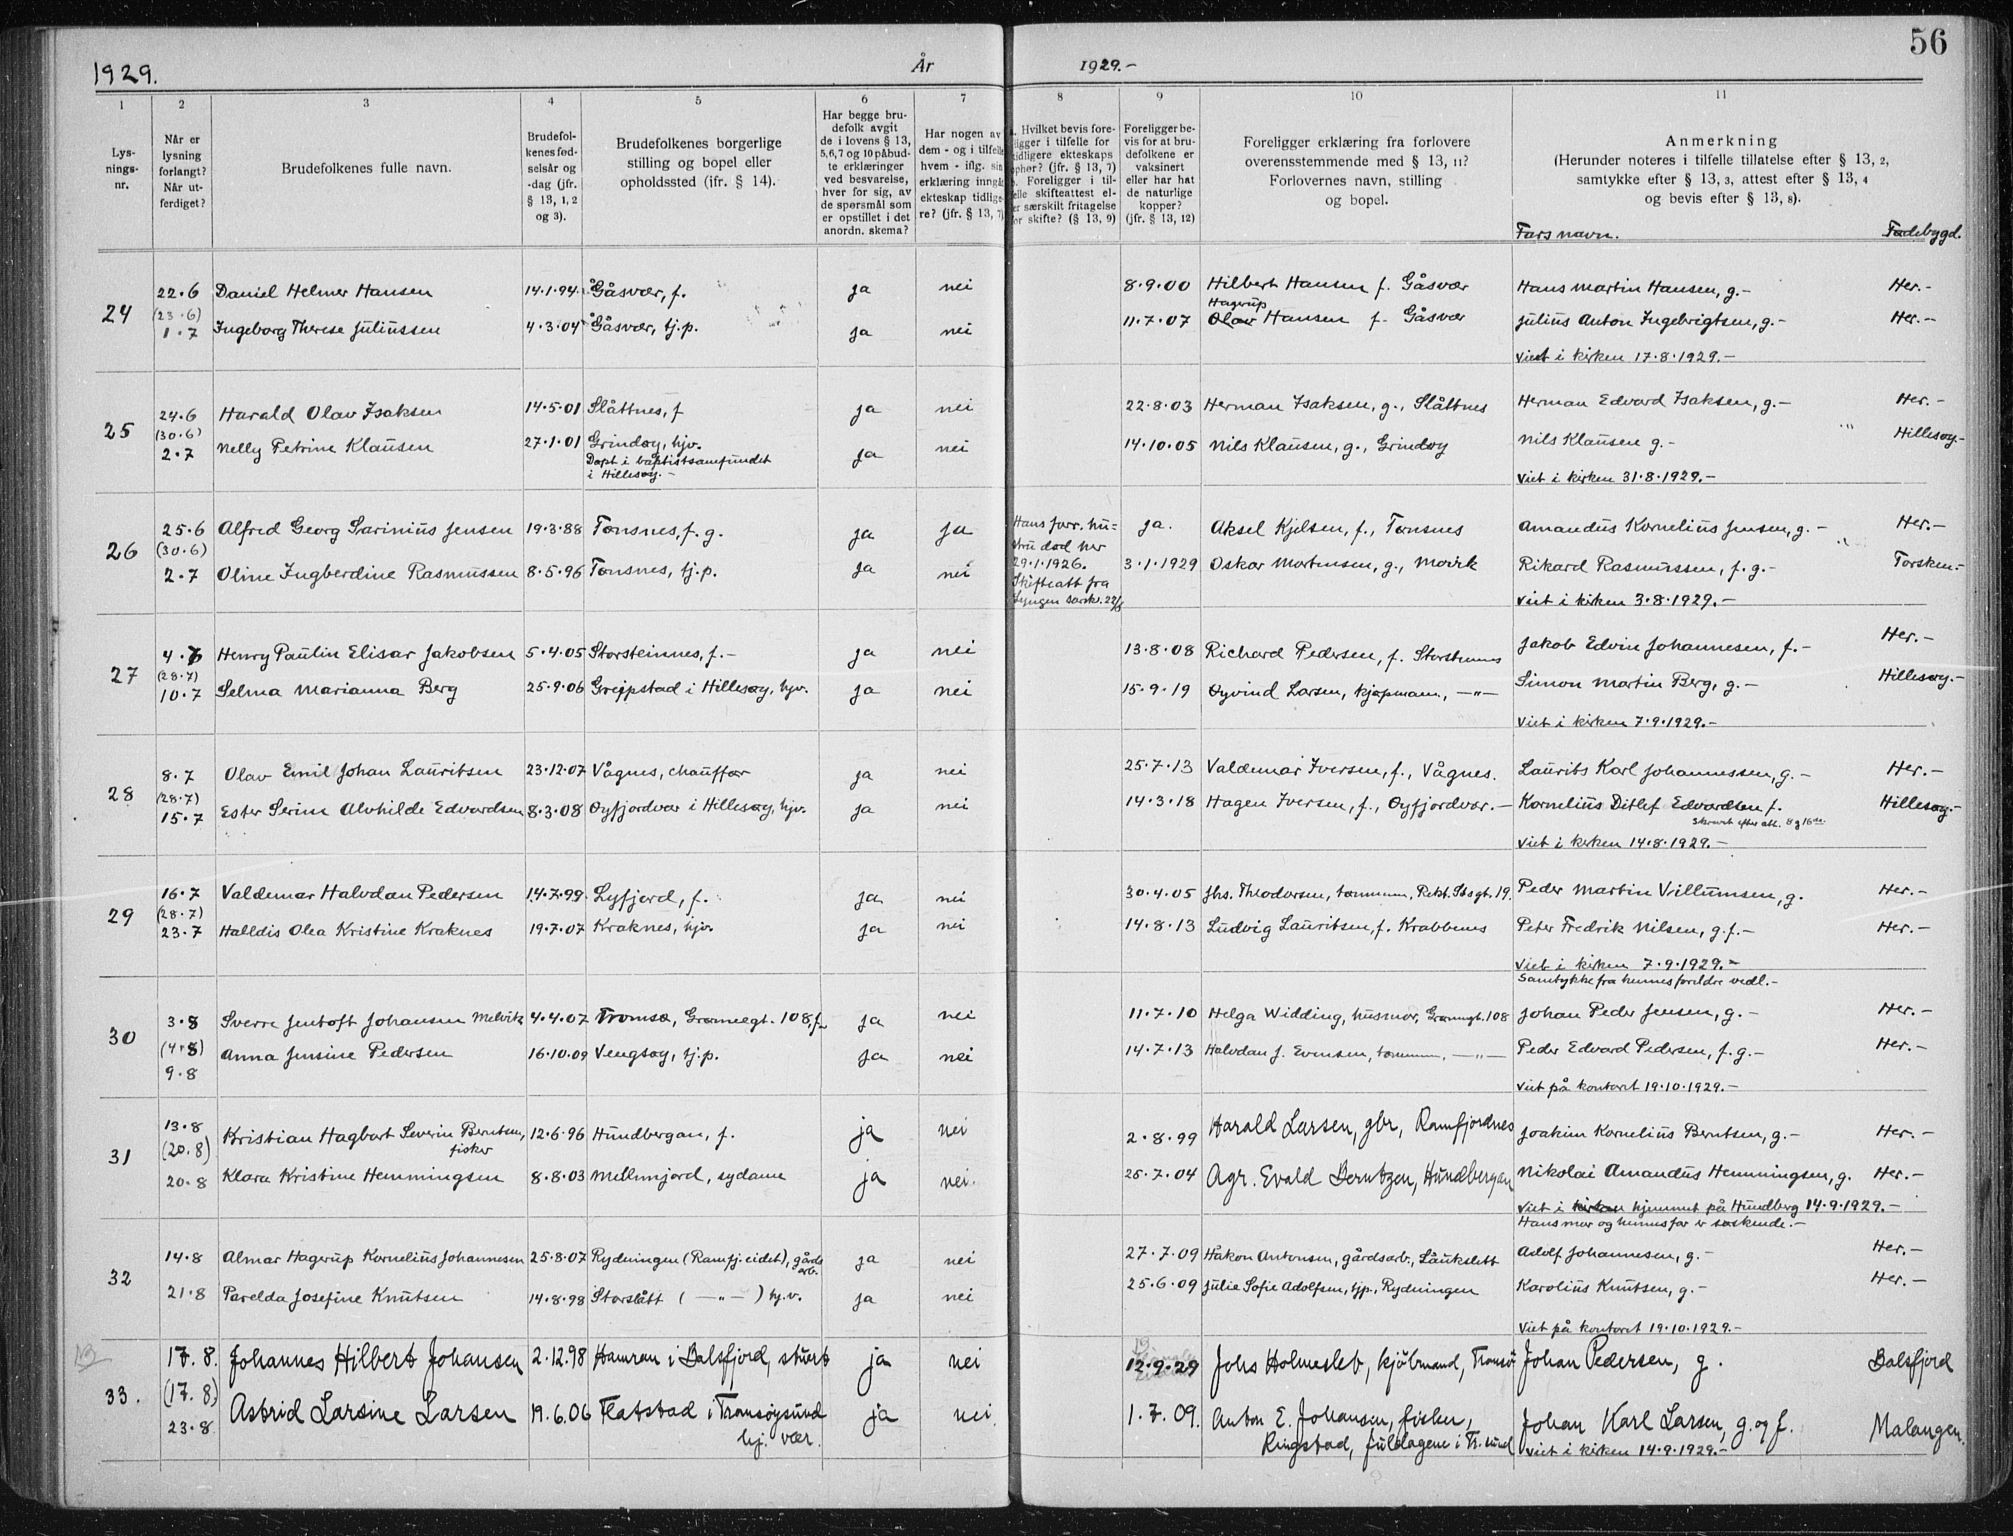 56
1929. År 1929.-
1 2 3 4 5 6 7 8 9 10 11
Lys-
nings-
nr.
Når er
lysning
forlangt?
Når ut-
ferdiget?
Brudefolkenes fulle navn.
Brudefol-
kenes fød-
selsår og
-dag (jfr.
§ 13, 1, 2
og 3).
Brudefolkenes borgerlige
stilling og bopel eller
opholdssted (ifr. § 14).
Har begge bru-
defolk avgit
de i lovens § 13,
5,6,7 og 10 påbud-
te erklæringer
ved besvarelse,
hver for sig, av
de spørsmål som
er opstillet i det
anordn. skema?
Har nogen av
dem - og i tilfelle
hvem - iflg. sin
erklæring inngått
ekteskap tidlige-
re? (jfr. § 13, 7)
. Hvilket bevis fore-
ligger i tilfelle for
tidligere ekteskaps
ophør? (jfr. § 13, 7)
b. Foreligger i til-
felle skifteattest el-
er særskilt fritagelse
or skifte? (§ 13, 9)
Foreligger be-
vis for at bru-
defolkene er
vaksinert
eller har hat
de naturlige
kopper?
(jfr. § 13, 12)
Foreligger erklæring fra forlovere
overensstemmende med § 13, 11?
Forlovernes navn, stilling
og bopel.
Anmerkning
(Herunder noteres i tilfelle tillatelse efter § 13, 2,
samtykke efter § 13, 3, attest efter § 13, 4
og bevis efter § 13, 8).
Fars navn. Fødebygd.
24
22.6 Daniel Helmer Hansen 14.1.94. Gåsvær, f. ja nei 8.9.00 Hilbert Hansen f. Gåsvær Hans Martin Hansen, g.- Her.-
(23.6) Hagerup
1.7 Ingeborg Therese Juliussen 4.3.04 Gåsvær, tj.p. ja nei 11.7.07 Olav Hansen f. Gåsvær Julius Anton Ingebrigtsen, g.- Her.-
Viet i kirken 17.8.1929.-
25
24.6 Harald Olav Isaksen 14.5.01 Slåttnes, f ja nei 22.8.03 Herman Isaksen, g., Slåttnes Herman Edvard Isaksen, g.- Her.-
(30.6)
2.7 Nelly Petrine Klausen 27.1.01 Grindøy, hjv. ja nei 14.10.05 Nils Klausen, g., Grindøy Nils Klausen g.- Hillesøy.-
Døpt i baptistsamfundet
i Hillesøy.- Viet i kirken 31.8.1929.-
26
25.6 Alfred Georg Sarinius Jensen 19.3.88 Tønsnes, f.g. ja ja Hans forr. hu= ja. Aksel Kjelsen, f., Tønsnes Amandus Kornelius Jensen, g.- Her.-
(30.6) stru død her
2.7 Oline Ingberdine Rasmussen 8.5.96 Tønsnes, tj.p. ja nei 29.1.1926. 3.1.1929 Oskar Mortensen, g., Movik Rikard Rasmussen, f.g.- Torsken.-
Skifteatt fra
Lyngen sorskr. 22/6 Viet i kirken 3.8.1929.-
27
4.7 Henry Paulin Elisar Jakobsen 5.4.05 Storsteinnes, f.- ja nei 13.8.08 Richard Pedersen, f. Storsteinnes Jakob Edvin Johannesen, f.- Her.-
(28.7)
10.7 Selma Marianna Berg 25.9.06 Greipstad i Hillesøy, hjv. ja nei 15.9.19 Øyvind Larsen, kjøpmann, -"- Simon Martin Berg, g.- Hillesøy.-
Viet i kirken 7.9.1929.-
28
8.7 Olav Emil Johan Lauritsen 23.12.07 Vågnes, chauffør ja nei 25.7.13 Valdemar Iversen, f., Vågnes. Laurits Karl Johannessen, g.- Her.-
(28.7)
15.7 Ester Serine Alvhilde Edvardsen 8.3.08 Øyfjordvær i Hillesøy, hjv. ja nei 14.3.18 Hagen Iversen, f., Øyfjordvær.- Kornelius Ditlef Edvardsen f. Hillesøy.-
Viet i kirken 14.8.1929.-
29
16.7 Valdemar Halvdan Pedersen 14.7.99. Lyfjord, f. ja nei 30.4.05 Jhs. Theodorsen, tømmerm, Rekt. Stsgt. 19. Peder Martin Villumsen, g. Her.-
(28.7)
23.7 Halldis Olea Kristine Kraknes 19.7.07 Kraknes, hjv. ja nei 14.8.13 Ludvig Lauritsen, f. Krabbenes Peter Fredrik Nilsen, g.f.- Her.-
Viet i kirken 7.9.1929.-
Samtykke fra hennes foreldre vedl.-
30
3.8 Sverre Jentoft Johansen Melvik 4.4.07 Tromsø, Grønnegt. 108, f. ja nei 11.7.10 Helga Widding, husmor, Grønnegt. 108 Johan Peder Jensen, g.- Her.-
(4.8)
9.8 Anna Jensine Pedersen 16.10.09 Vengsøy, tj.p. ja nei 14.7.13 Halvdan J. Evensen, tømmerm, -"- Peder Edvard Pedersen, f.g.- Her.-
Viet på kontoret 19.10.1929.-
31
13.8 Kristian Hagbart Severin Berntsen, 12.6.96 Hundbergan, f. ja nei 2.8.99 Harald Larsen, gbr, Ramfjordnes Joakim Kornelius Berntsen, g.- Her.-
(20.8) fisker
20.8 Klara Kristine Hemmingsen 8.8.03 Mellemjord, sydame ja nei. 25.7.04 Agr. Evald Berntzen, Hundbergan Nikolai Amandus Hemmingsen, g. Her.-
Viet i kirken hjemmet på Hundberg 14.9.1929.-
Hans mor og hennes far er søskende.-
32
14.8 Almar Hagerup Kornelius Johannesen 25.8.07 Rydningen (Ramfj.eidet), gårds arb. ja nei 27.7.09 Håkon Antonsen, gårdsarb., Saukslett Adolf Johannesen, g.- Her.-
21.8 Parelda Josefine Knutsen 14.8.98 Storslått (-"-) hj.v. ja nei 25.6.09 Julie Sofie Adolfsen, tjp., Rydningen Karolius Knutsen, g.- Her.-
Viet på kontoret 19.10.1929.-
33.
17.8. Johannes Hilbert Johansen 2.12.98 Hamran i Balsfjord, stuert ja nei 12.9.29 Johs Holmeslet, kjøbmand, Tromsø Johan Pedersen, g. Balsfjord
(17.8)
23.8 Astrid Larsine Larsen 19.6.06 Flatstad i Tromsøysund ja nei. 1.7.09. Anton E. Johansen, fisker, Johan Karl Larsen, g. og f. Malangen.
hj. vær. Ringstad, i Tr.sund Viet i kirken 14.9.1929.-